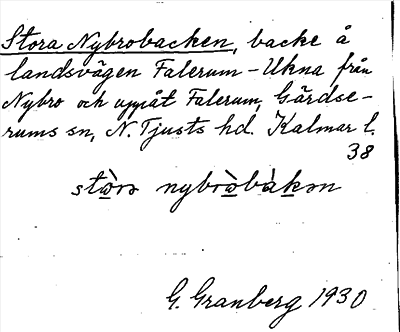 Stora Nybrobacken, backe å
landsvägen Falerum - Ukna från
Nybro och uppåt Falerum, Gärdse-
rums sn, N. Tjusts hd. Kalmar l.
38
stòrɑ nybròbàkɘn
G. Granberg 1930